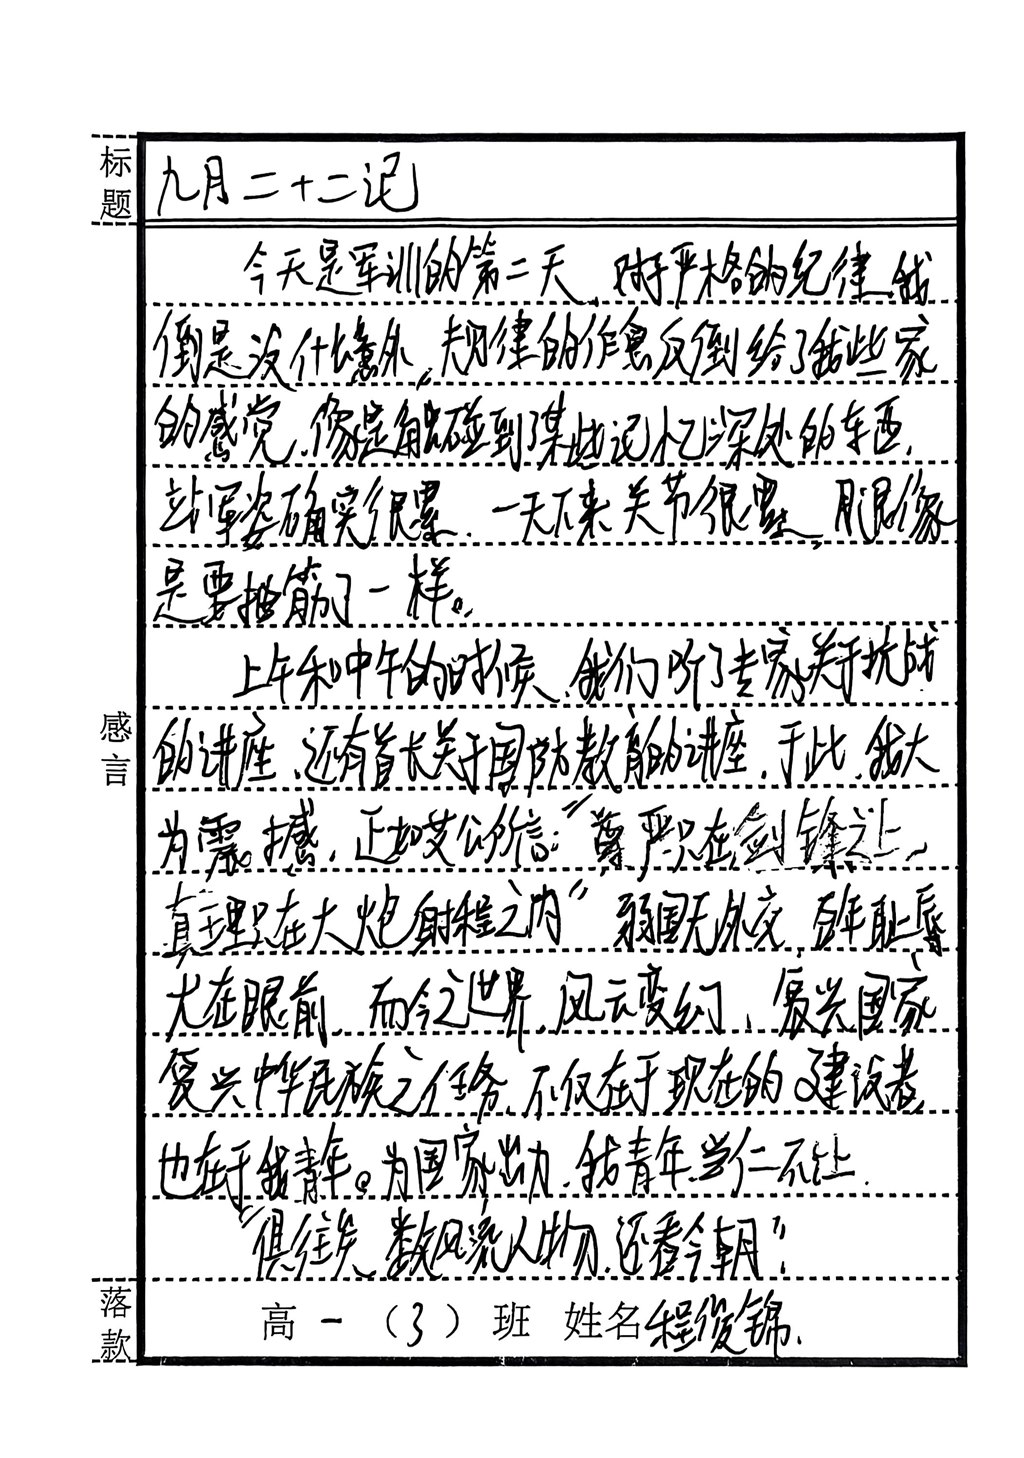 标题
九月二十二记
今天是军训的第二天,对于严格的纪律,我
倒是没什么意外,规律的作息反倒给了我些家
的感觉,像是触碰到了某些记忆深处的东西,
站军姿确实很累,一天下来关节很累,腿像
是要抽筋了一样。
上午和中午的时候,我们听了专家关于抗战
感言
的讲座,还有首长关于国防教育的讲座,于此,我大
为震撼,正如艾公所言:“尊严只在剑锋之上,
真理只在大炮射程之内”弱国无外交,百年耻辱
尤在眼前,而今之世界,风云变幻,复兴国家
复兴中华民族之任务,不仅在于现在的建设者,
也在于我青年。为国家出力,我青年当仁不让.
“俱往矣,数风流人物,还看今朝”
落款
高一(3)班 姓名程俊锦.